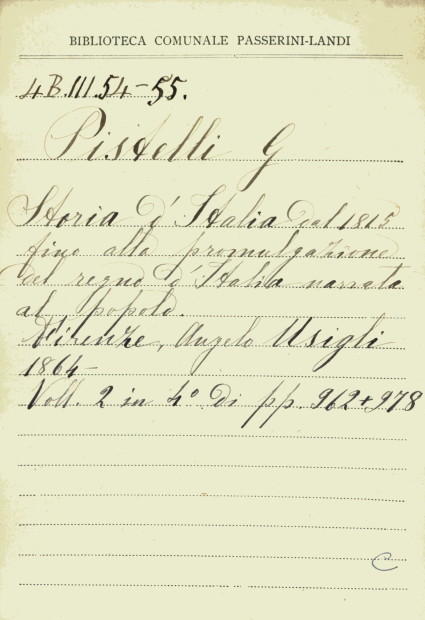 BIBLIOTECA COMUNALE PASSERINI-LANDI
4B.III.54-55.
Pistelli G
Storia d'Italia dal 1815
fino alla promulgazione
del regno d'Italia narrata
al popolo.
Firenze, Angelo Usigli
1864-
Voll. 2 in 4° di pp. 962+978
C